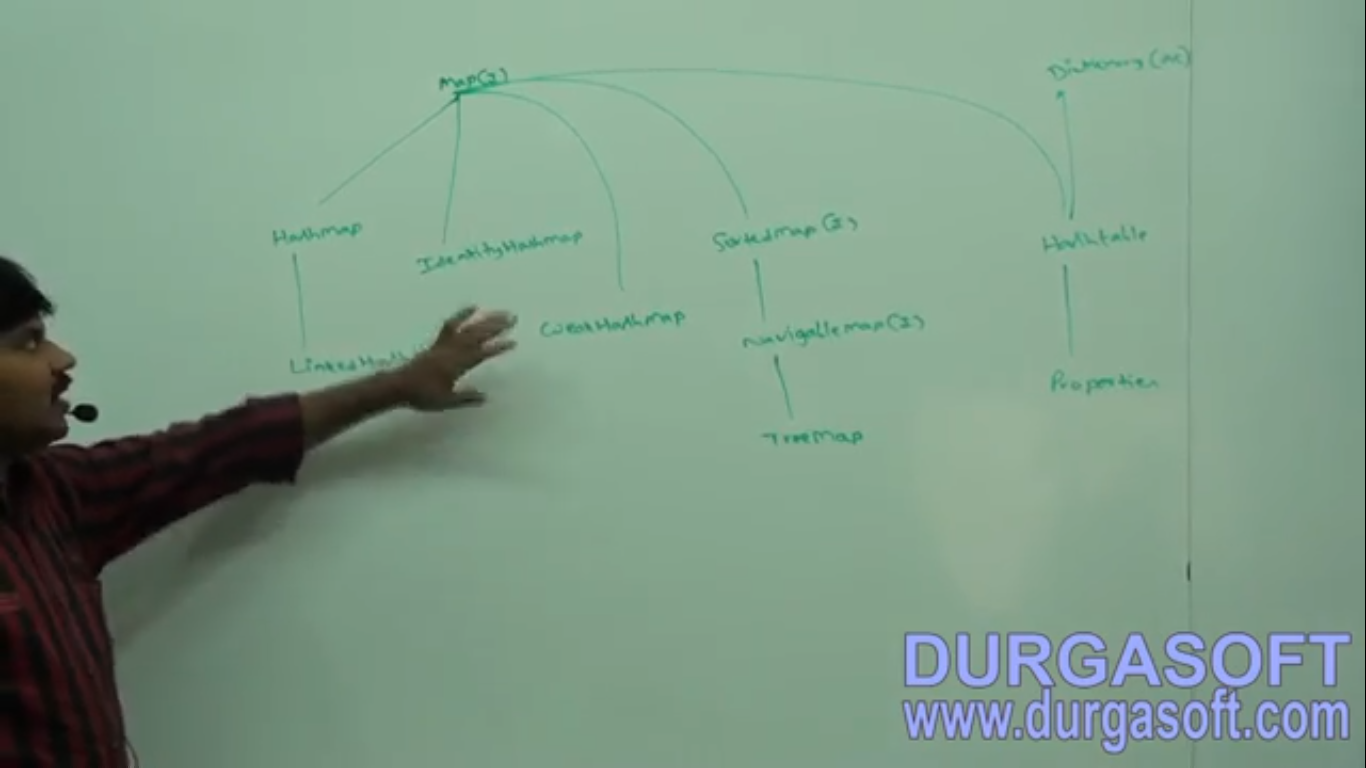 Map(I)
Dictionary(AC)
Hashmap
IdentityHashmap
SortedMap(I)
Hashtable
WeakHashMap
NavigableMap(I)
LinkedHash
Properties
TreeMap
DURGASOFT
www.durgasoft.com